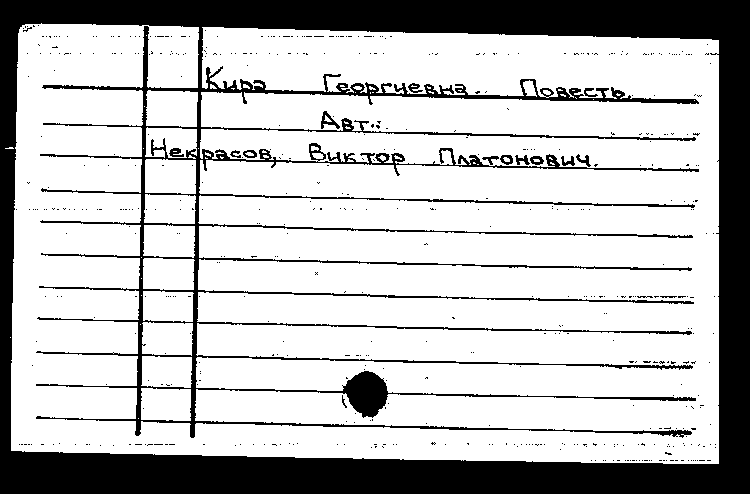 Кира Георгиевна. Повесть.
Авт.:
Некрасов, Виктор Платонович.